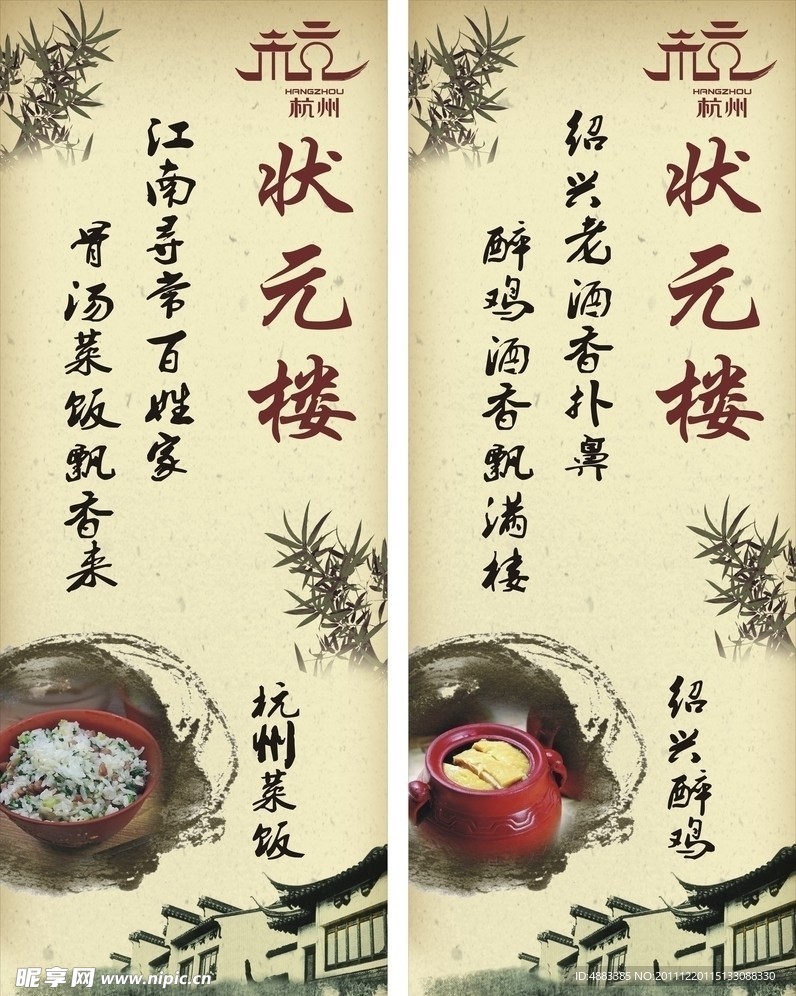 杭
HANGZHOU
杭州
状元楼
江南寻常百姓家
骨汤菜饭飘香来
杭州菜饭
杭
HANGZHOU
杭州
状元楼
绍兴老酒香扑鼻
醉鸡酒香飘满楼
绍兴醉鸡
昵享网 www.nipic.cn
ID:4883885 NO:20111220115133088330